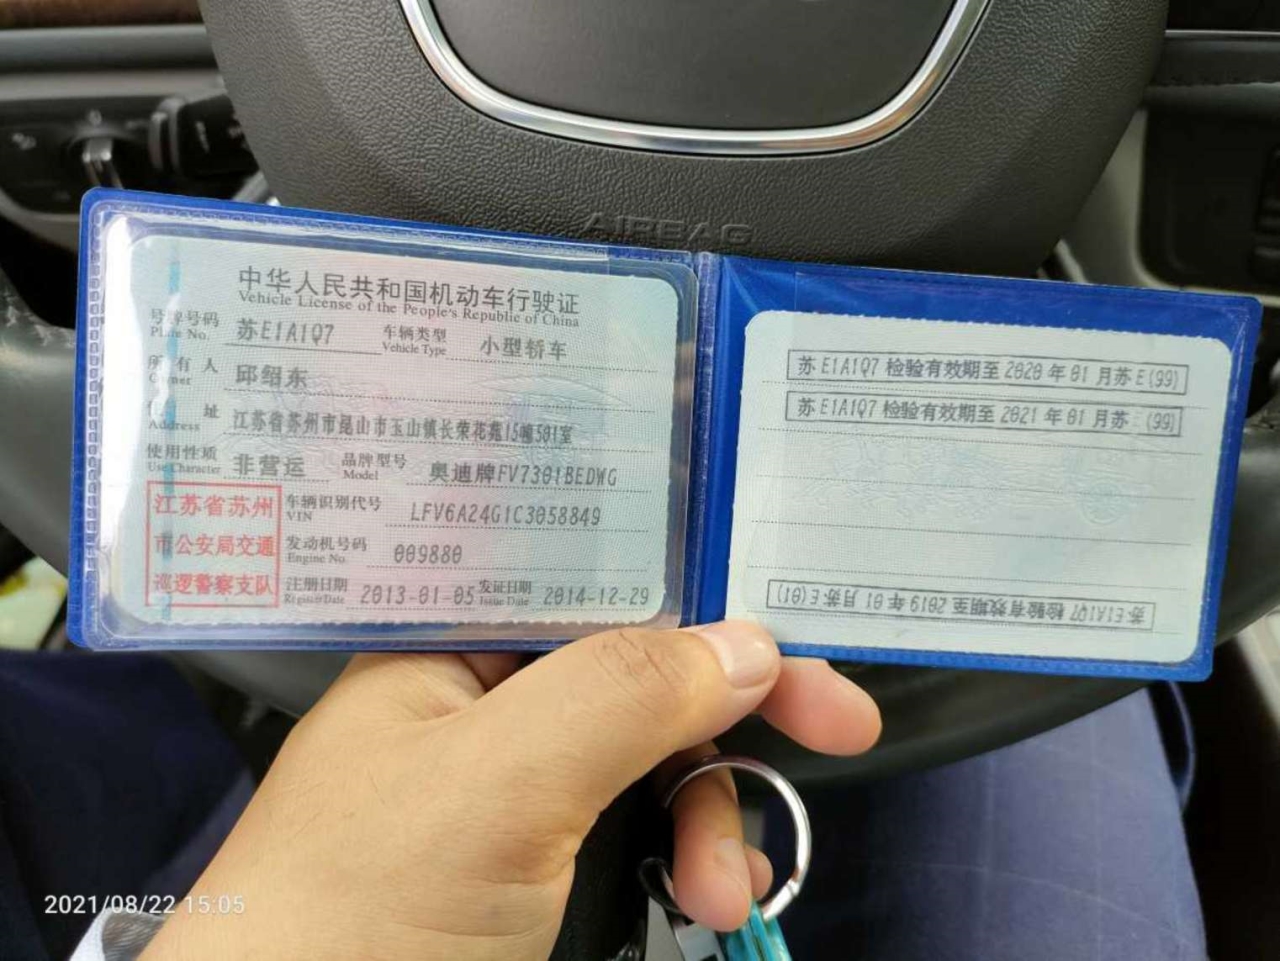 AIRBAG
中华人民共和国机动车行驶证
Vehicle License of the People's Republic of China
号牌号码 苏E1A1Q7 车辆类型 小型轿车
Plate No. Vehicle Type
所有人 邱绍东
Owner
住址 江苏省苏州市昆山市玉山镇长荣花苑15幢501室
Address
使用性质 非营运 品牌型号 奥迪牌FV7301BEDWG
Use Character Model
江苏省苏州
市公安局交通
巡逻警察支队
车辆识别代号 LFV6A24G1C3058849
VIN
发动机号码 009880
Engine No.
注册日期 2013-01-05 发证日期 2014-12-29
Register Date Issue Date
苏E1A1Q7 检验有效期至 2020 年 01 月苏E(99)
苏E1A1Q7 检验有效期至 2021 年 01 月苏 (99)
苏E1A1Q7 检验有效期至 2019 年 01 月苏E(01)
2021/08/22 15:05